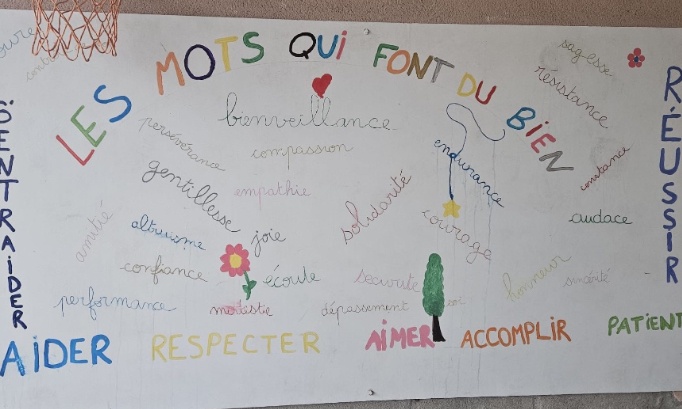 LES MOTS QUi FONT DU BiEN
sagesse
résistance
bienveillance
persévérance
compassion
endurance
gentillesse
empathie
constance
solidarité
amitié
altruisme
joie
courage
audace
confiance
écoute
honneur
performance
modestie
dépassement
soi
S'ENTRAiDER
RÉUSSiR
AiDER
RESPECTER
AiMER
ACCOMPLiR
PATIENT